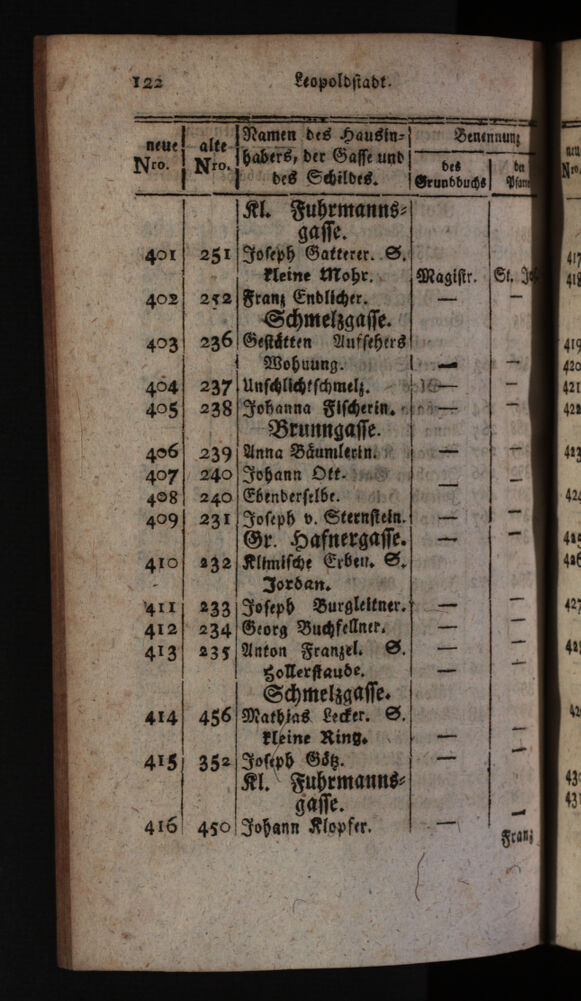 122 Leopoldstadt.
neue Nro. | alte Nro. | Namen des Hausin=
habers, der Gasse und
des Schildes. | Benennung
des Grundbuchs | der
Kl. Fuhrmanns=
gasse.
401 251 Joseph Gatterer. S.
kleine Mohr. Magistr. St.
402 252 Franz Endlicher. — —
Schmelzgasse.
403 236 Gestätten Aufsehers
Wohnung. — —
404 237 Unschlichtschmelz. — —
405 238 Johanna Fischerin. — —
Brunngasse.
406 239 Anna Bäumlerin. — —
407 240 Johann Ott. — —
408 240 Ebenderselbe.
409 231 Joseph v. Sternstein. — —
Gr. Hafnergasse. — —
410 232 Klimische Erben. S.
Jordan.
411 233 Joseph Burgleitner. — —
412 234 Georg Buchfellner. — —
413 235 Anton Franzel. S. — —
Hollerstaude. — —
Schmelzgasse.
414 456 Mathias Lecker. S.
kleine Ring. — —
415 352 Joseph Götz. — —
Kl. Fuhrmanns=
gasse.
416 450 Johann Klopfer. — —
Franz